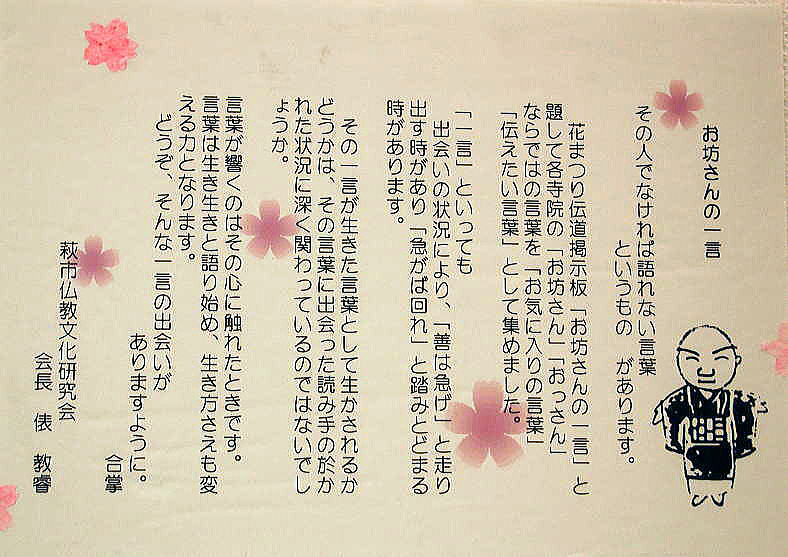 お坊さんの一言
その人でなければ語れない言葉
というもの　があります。
花まつり伝道掲示板「お坊さんの一言」と
題して各寺院の「お坊さん」「おっさん」
ならではの言葉を「お気に入りの言葉」
「伝えたい言葉」として集めました。
「一言」といっても
出会いの状況により、「善は急げ」と走り
出す時があり「急がば回れ」と踏みとどまる
時があります。
その一言が生きた言葉として生かされるか
どうかは、その言葉に出会った読み手の於か
れた状況に深く関わっているのではないでし
ょうか。
言葉が響くのはその心に触れたときです。
言葉は生き生きと語り始め、生き方さえも変
える力となります。
どうぞ、そんな一言の出会いが
ありますように。
合掌
萩市仏教文化研究会
会長　俵　教睿